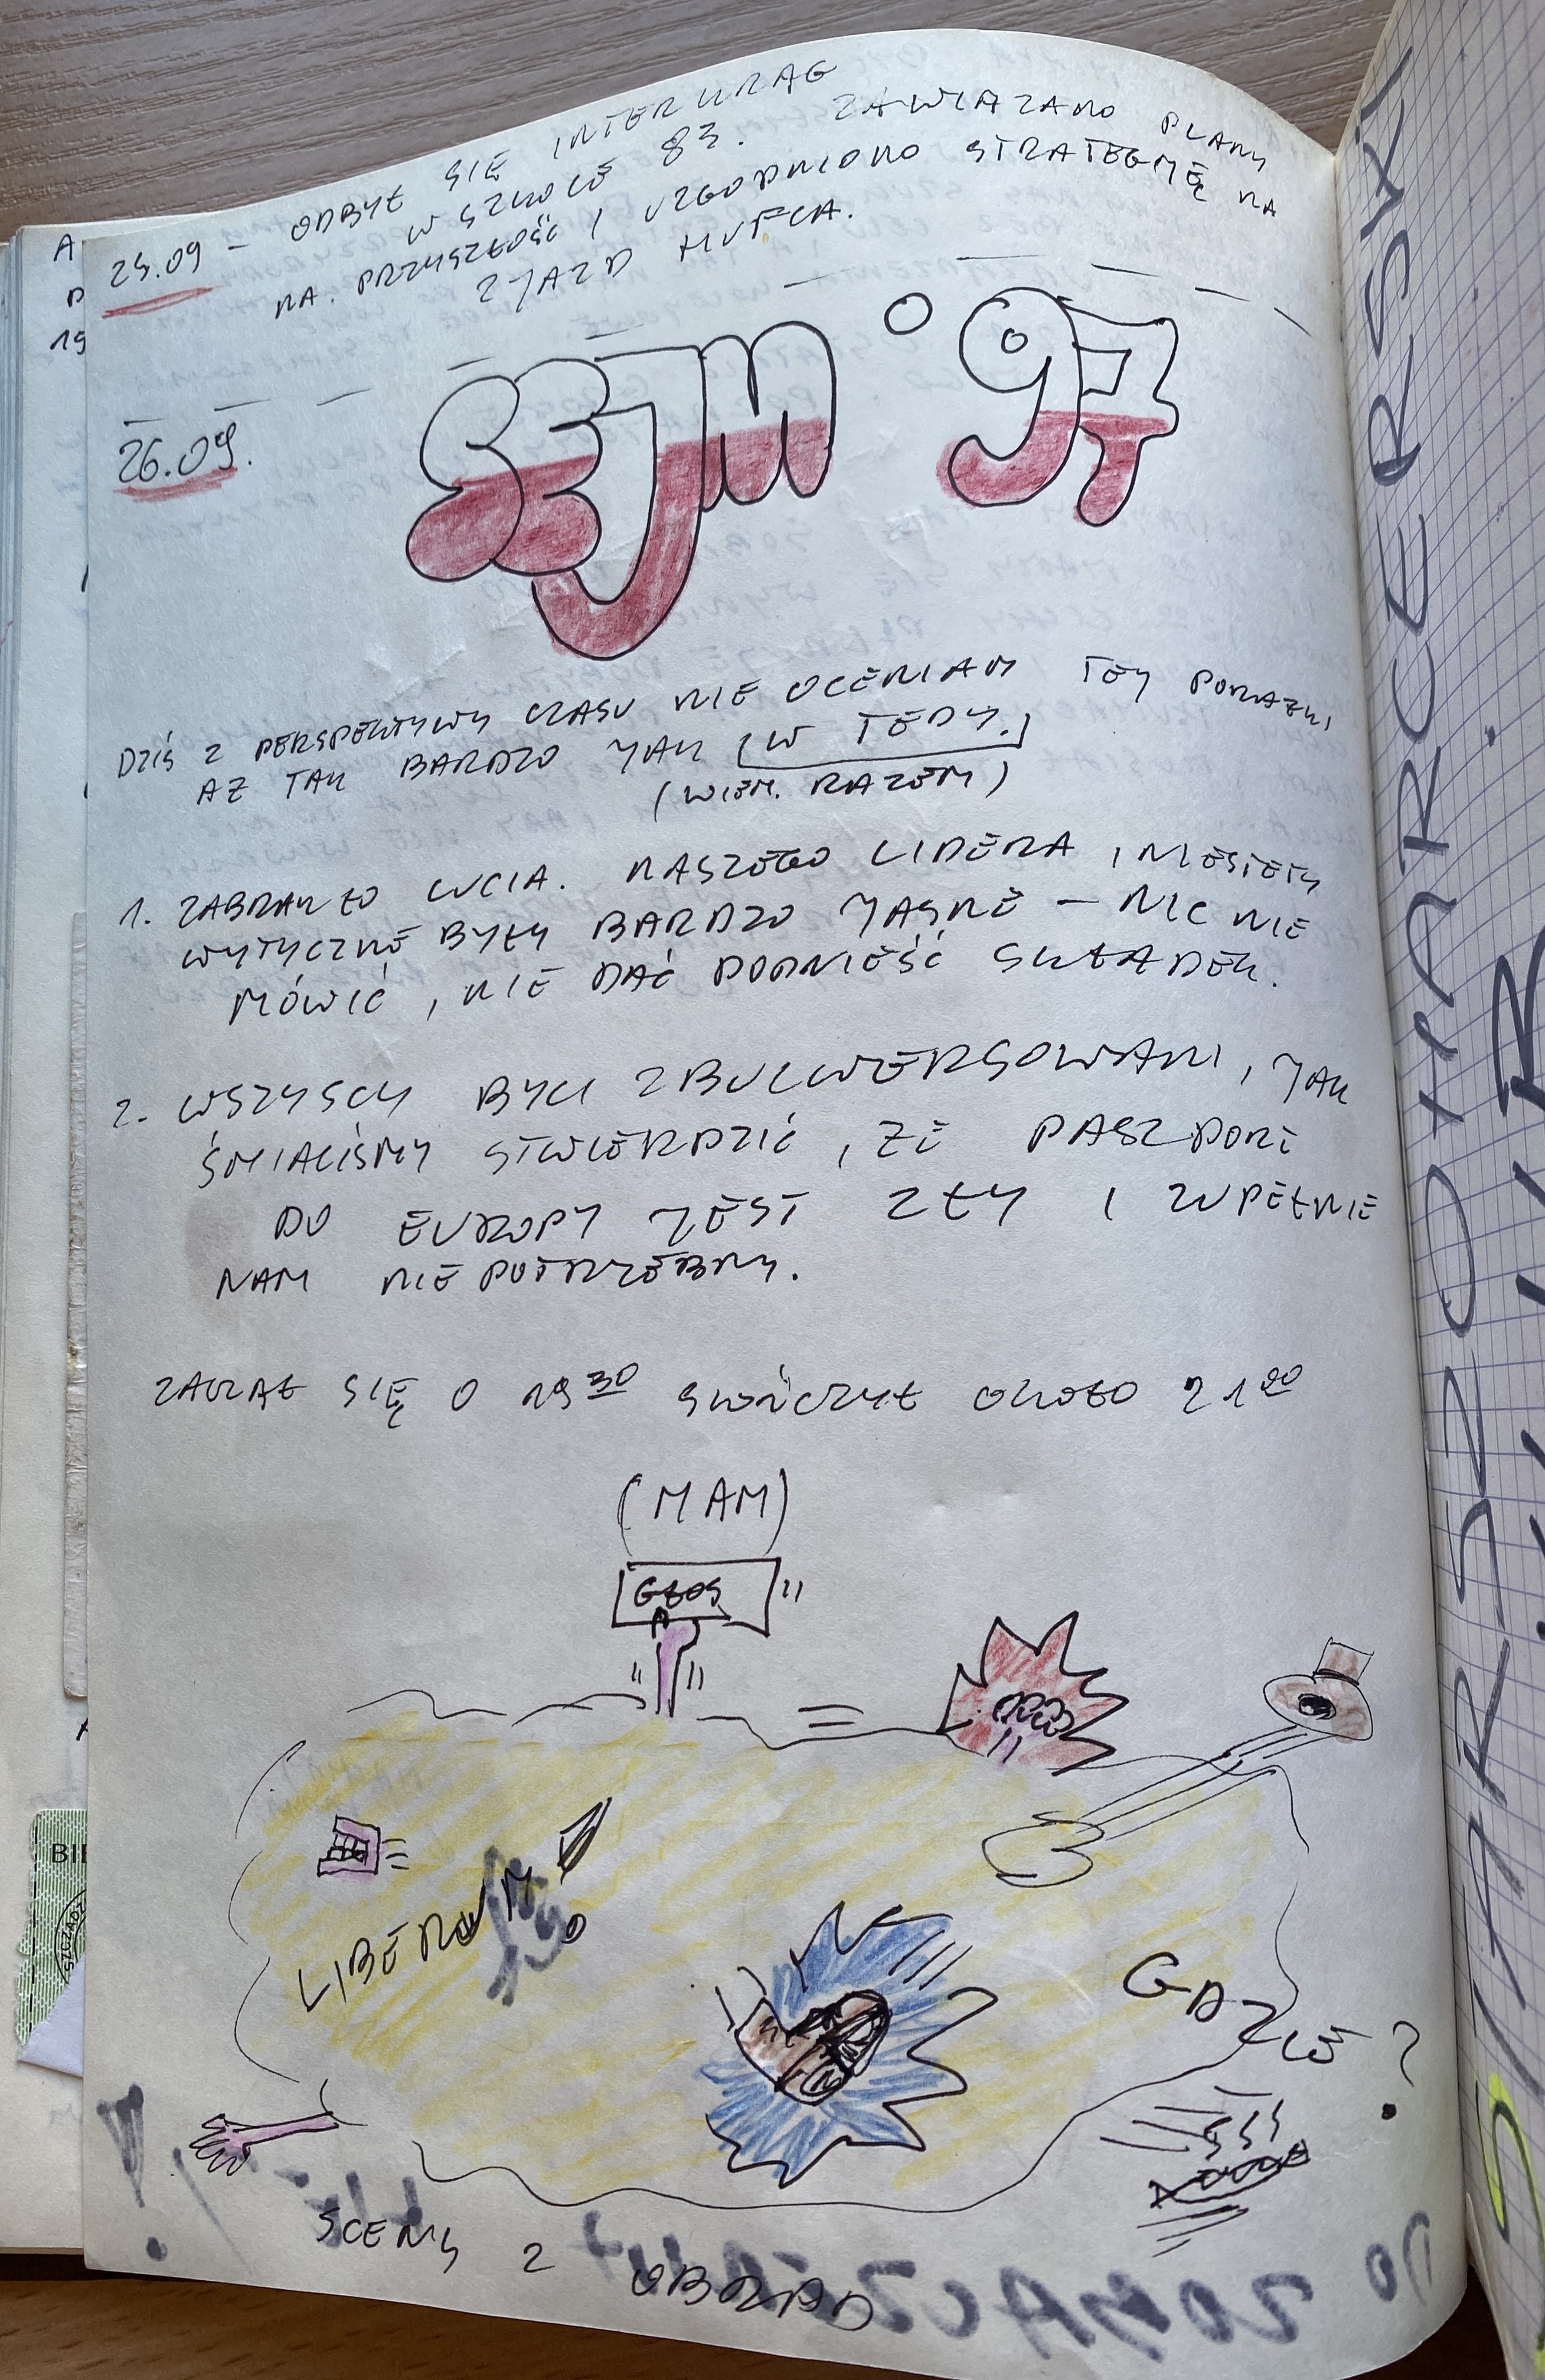 25.09 – ODBYŁ SIĘ INTERKRĄG
W SZKOLE 83. ZAWIĄZANO PLANY
NA. PRZYSZŁOŚĆ I UZGODNIONO STRATEGIĘ NA
ZJAZD HUFCA.
26.09.
SEJM '97
DZIŚ Z PERSPEKTYWY CZASU NIE OCENIAM TEJ PORAŻKI
AŻ TAK BARDZO JAK (W TEDY.)
(WIEM. RAZEM)
1. ZABRAKŁO LUCIA. NASZEGO LIDERA, NIESTETY
WYTYCZNE BYŁY BARDZO JASNE – NIC NIE
MÓWIĆ, NIE DAĆ PODNIEŚĆ SKŁADEK.
2. WSZYSCY BYLI ZBULWERSOWANI, JAK
ŚMIALIŚMY STWIERDZIĆ, ŻE PASZPORT
DO EUROPY JEST ZŁY I ZUPEŁNIE
NAM NIE POTRZEBNY.
ZACZĄŁ SIĘ O 19 30 SKOŃCZYŁ OKOŁO 21 00
(MAM)
GŁOS
LIBERUM
GDZIE?
SCENY Z OBRAD
STARSZOHARCERSKI
A
19
BI